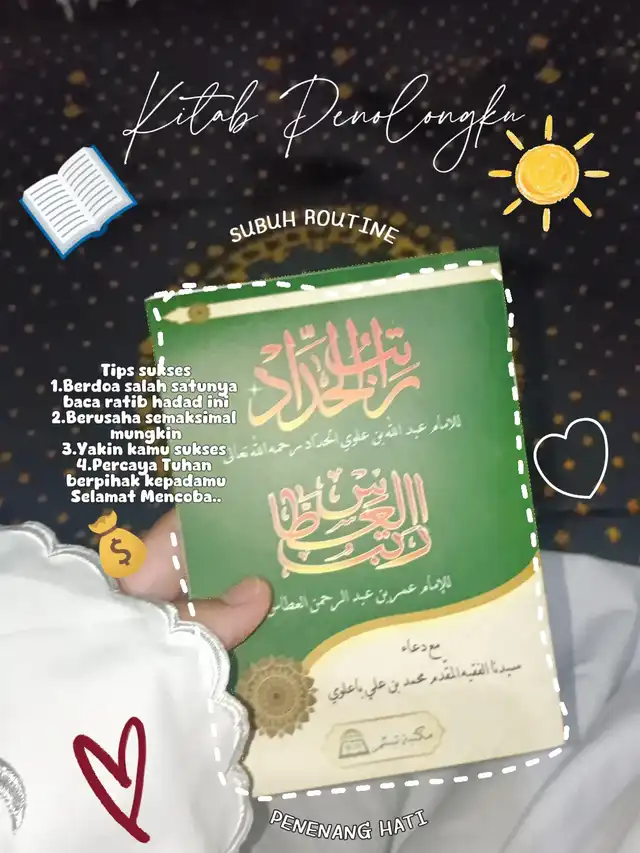 Kitab Penolongku
SUBUH ROUTINE
راتب الحداد
للإمام عبد الله بن علوي الحداد رحمه الله تعالى
Tips sukses
1.Berdoa salah satunya
baca ratib hadad ini
2.Berusaha semaksimal
mungkin
3.Yakin kamu sukses
4.Percaya Tuhan
berpihak kepadamu
Selamat Mencoba..
راتب العطاس
للإمام عمر بن عبد الرحمن العطاس
مع دعاء
سيدنا الفقيه المقدم محمد بن علي باعلوي
مكتبة
PENENANG HATI